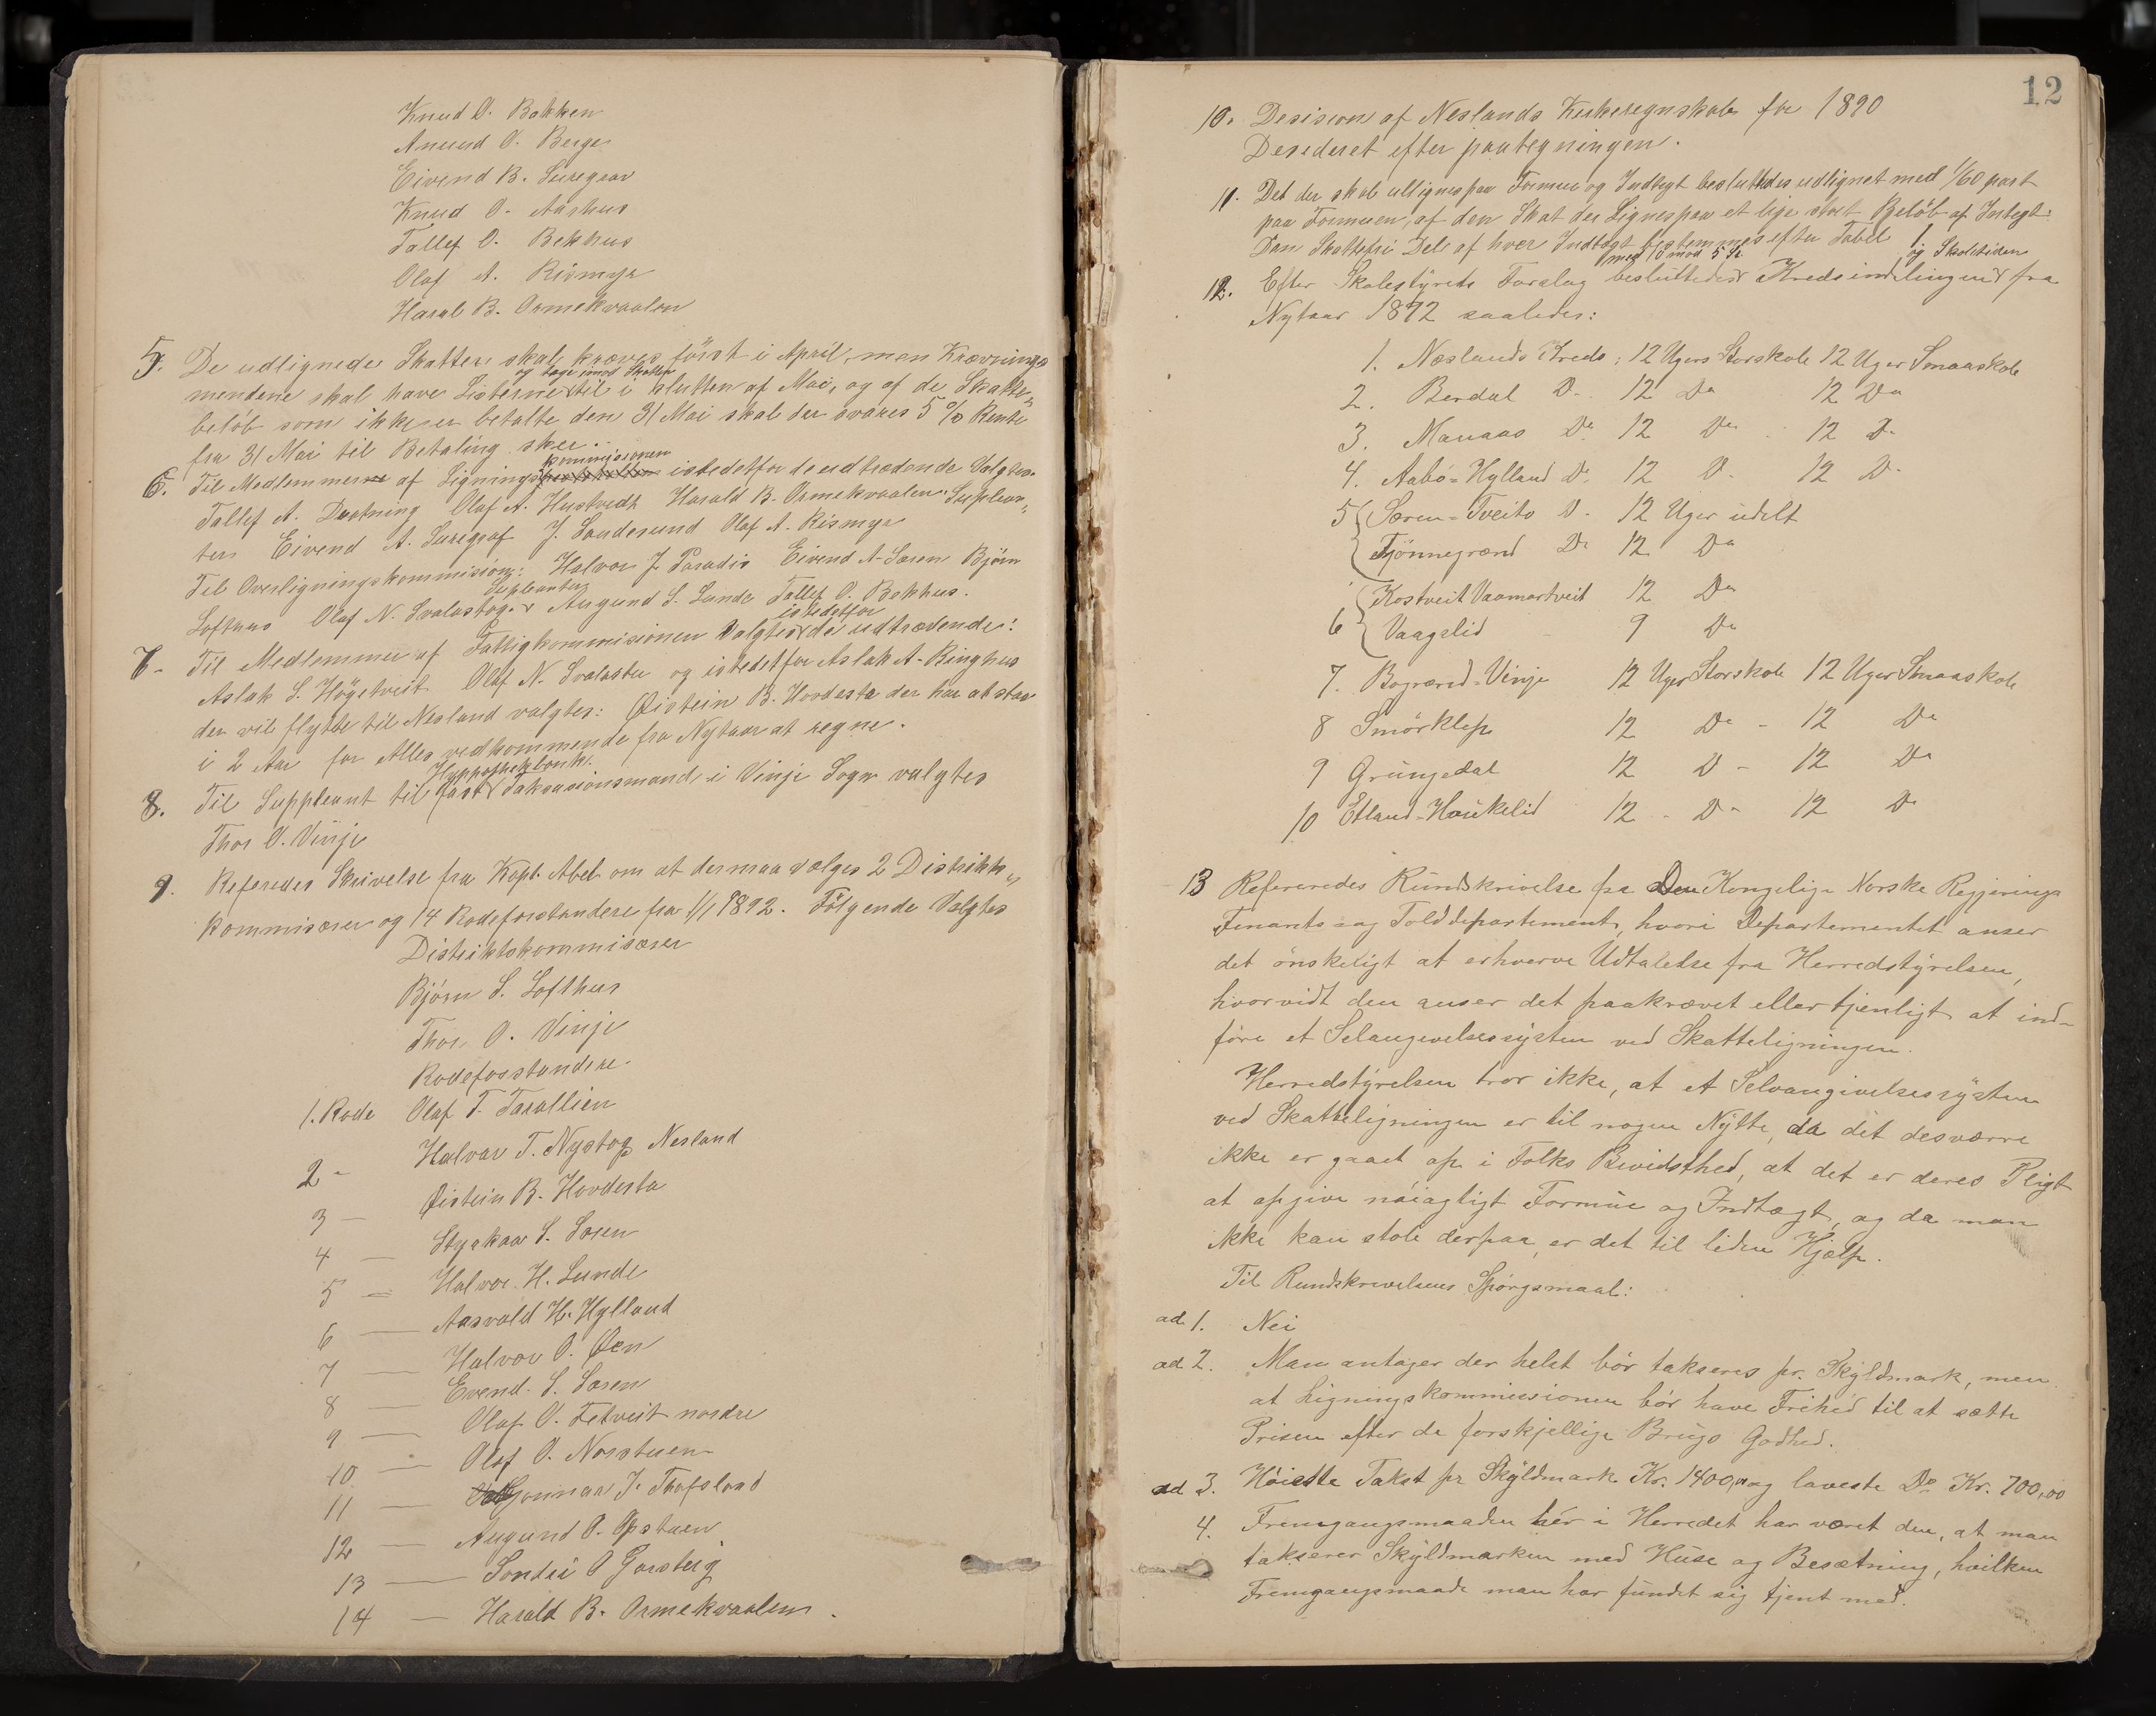 Knud O. Bakken
Anund O. Berge
Eivend B. Suregrav
Knud O. Aarhus
Tallef O. Bekhus
Olaf A. Rismyr
Haral B. Ormekvaalen
5. De udlignede Skatter skal kræves først i April, men Krævnings-
mendene skal have Listerne og tage imod Skatten til i slutten af Mai, og af de Skatte-
beløb som ikke er betalte den 31 Mai skal der svares 5 % Rente
fra 31 Mai til Betaling sker.
6. Til Medlemmerne af Lignings kommisionen istedetfor de udtrædende Valgtes
Tallef A. Dretning Olaf A. Hustvedt Harald B. Ormekvaalen. Suplean-
ter Eivend A. Suregraf J. Sandesund Olaf A. Rismyr
Til Overligningskommision: Halvor J. Paradis Eivend A. Saren Bjørn
Lofthus Olaf N. Svalastog. Supleanter Augund S. Lunde Tallef O. Bekhus.
7- Til Medlemmer af Fattigkommisionen Valgtes istedetfor de udtrædende:
Aslak S. Høgetveit Olaf N. Svalastu og istedetfor Aslak A. Ringhus
der vil flytte til Nesland valgtes: Øistein B. Hovdesta der har at staa
i 2 Aar for Alles vedkommende fra Nytaar at regne.
8. Til Suppleant til fast Hyppothekbank. Taksasionsmand i Vinje Sogn valgtes
Thor O. Vinje
9. Referedes Skrivelse fra Kapt. Abel om at der maa vælges 2 Distrikts-
kommisærer og 14 Rodeforstandere fra 1/1 1892. Følgende Valgtes
Distriktskommisærer
Bjørn S. Lofthus
Thor O. Vinje
Rodeforstandere.
1. Rode Olaf T. Tarallien
2 - Halvor T. Nystog Nesland
3 — Øistein B. Hovdesta
4 — Styrkaar S. Saren
5 — Halvor H. Lunde
6 — Aasvald H. Hylland
7 — Halvor O. Øen
8 — Evend. S. Saren
9 — Olaf O. Felveit nordre
10 — Olaf O. Norstuen
11 — Gunnar J. Thofsland
12 — Augund O. Opstuen
13 — Sondre O Garsberg
14 — Harald B. Ormekvaalen.
12
10. Desision af Neslands Kirkeregnskab for 1890
Desideret efter paategningen.
11. Det der skal udlignes paa Formue og Indtægt besluttedes udlignet med 1/60 part
paa Formuen, af den Skat der Lignes paa et lige stort Beløb af Indtægt:
Den Skattefri Dele af hver Indtægt bestemmes efter Tabel 1
12. Efter Skolestyrets Forslag med 10 mod 5 St. besluttedes Kredsindelingen og Skoletiden fra
Nytaar 1892 saaledes:
1. Neslands Kreds: 12 Ugers Storskole 12 Uger Smaaskole
2. Berdal Do. 12 Do 12 Do
3. Manaas Do 12 Do. 12 Do
4. Aabø-Hylland Do. 12 D. 12 D.
5 Særen-Tveito D. 12 Uger udelt
Tjønnegrænd Do 12 Do
Kostveit Vaamartveit 12 Do
6 Vaagslid - 9 Do
7. Bogrænd-Vinje 12 Uger Storskole 12 Uger Smaaskole
8 Smørklep 12 Do - 12 Do
9 Grungedal 12 D - 12 Do
10 Edland-Haukelid 12 - Do 12 Do
13 Refereredes Rundskrivelse fra Den Kongelige Norske Regjerings
Finants- og Tolddepartement, hvori Departementet anser
det ønskeligt at erhverve Udtalelse fra Herredstyrelsen,
hvorvidt den anser det paakrævet eller tjenligt at ind-
føre et Selangivelsessystem ved Skatteligningen.
Herredstyrelsen tror ikke, at et Selvangivelsessystem
ved Skatteligningen er til nogen Nytte, da det desværre
ikke er gaaet op i Folks Bevidsthed, at det er deres Pligt
at opgive nøiagtigt Formue og Indtægt, og da man
ikke kan stole derpaa, er det til liden Hjælp.
Til Rundskrivelsens Spørgsmaal:
ad 1. Nei
ad 2. Man antager der helst bør takseres pr. Skyldmark, men
at Ligningskommissionen bør have Frihed til at sætte
Prisen efter de forskjellige Brugs Godhed.
ad 3. Høieste Takst pr Skyldmark Kr. 1400,00 og laveste Do Kr. 700,00
4. Fremgangsmaaden her i Herredet har været den, at man
takserer Skyldmarken med Huse og Besætning, hvilken
Fremgangsmaade man har fundet sig tjent med.